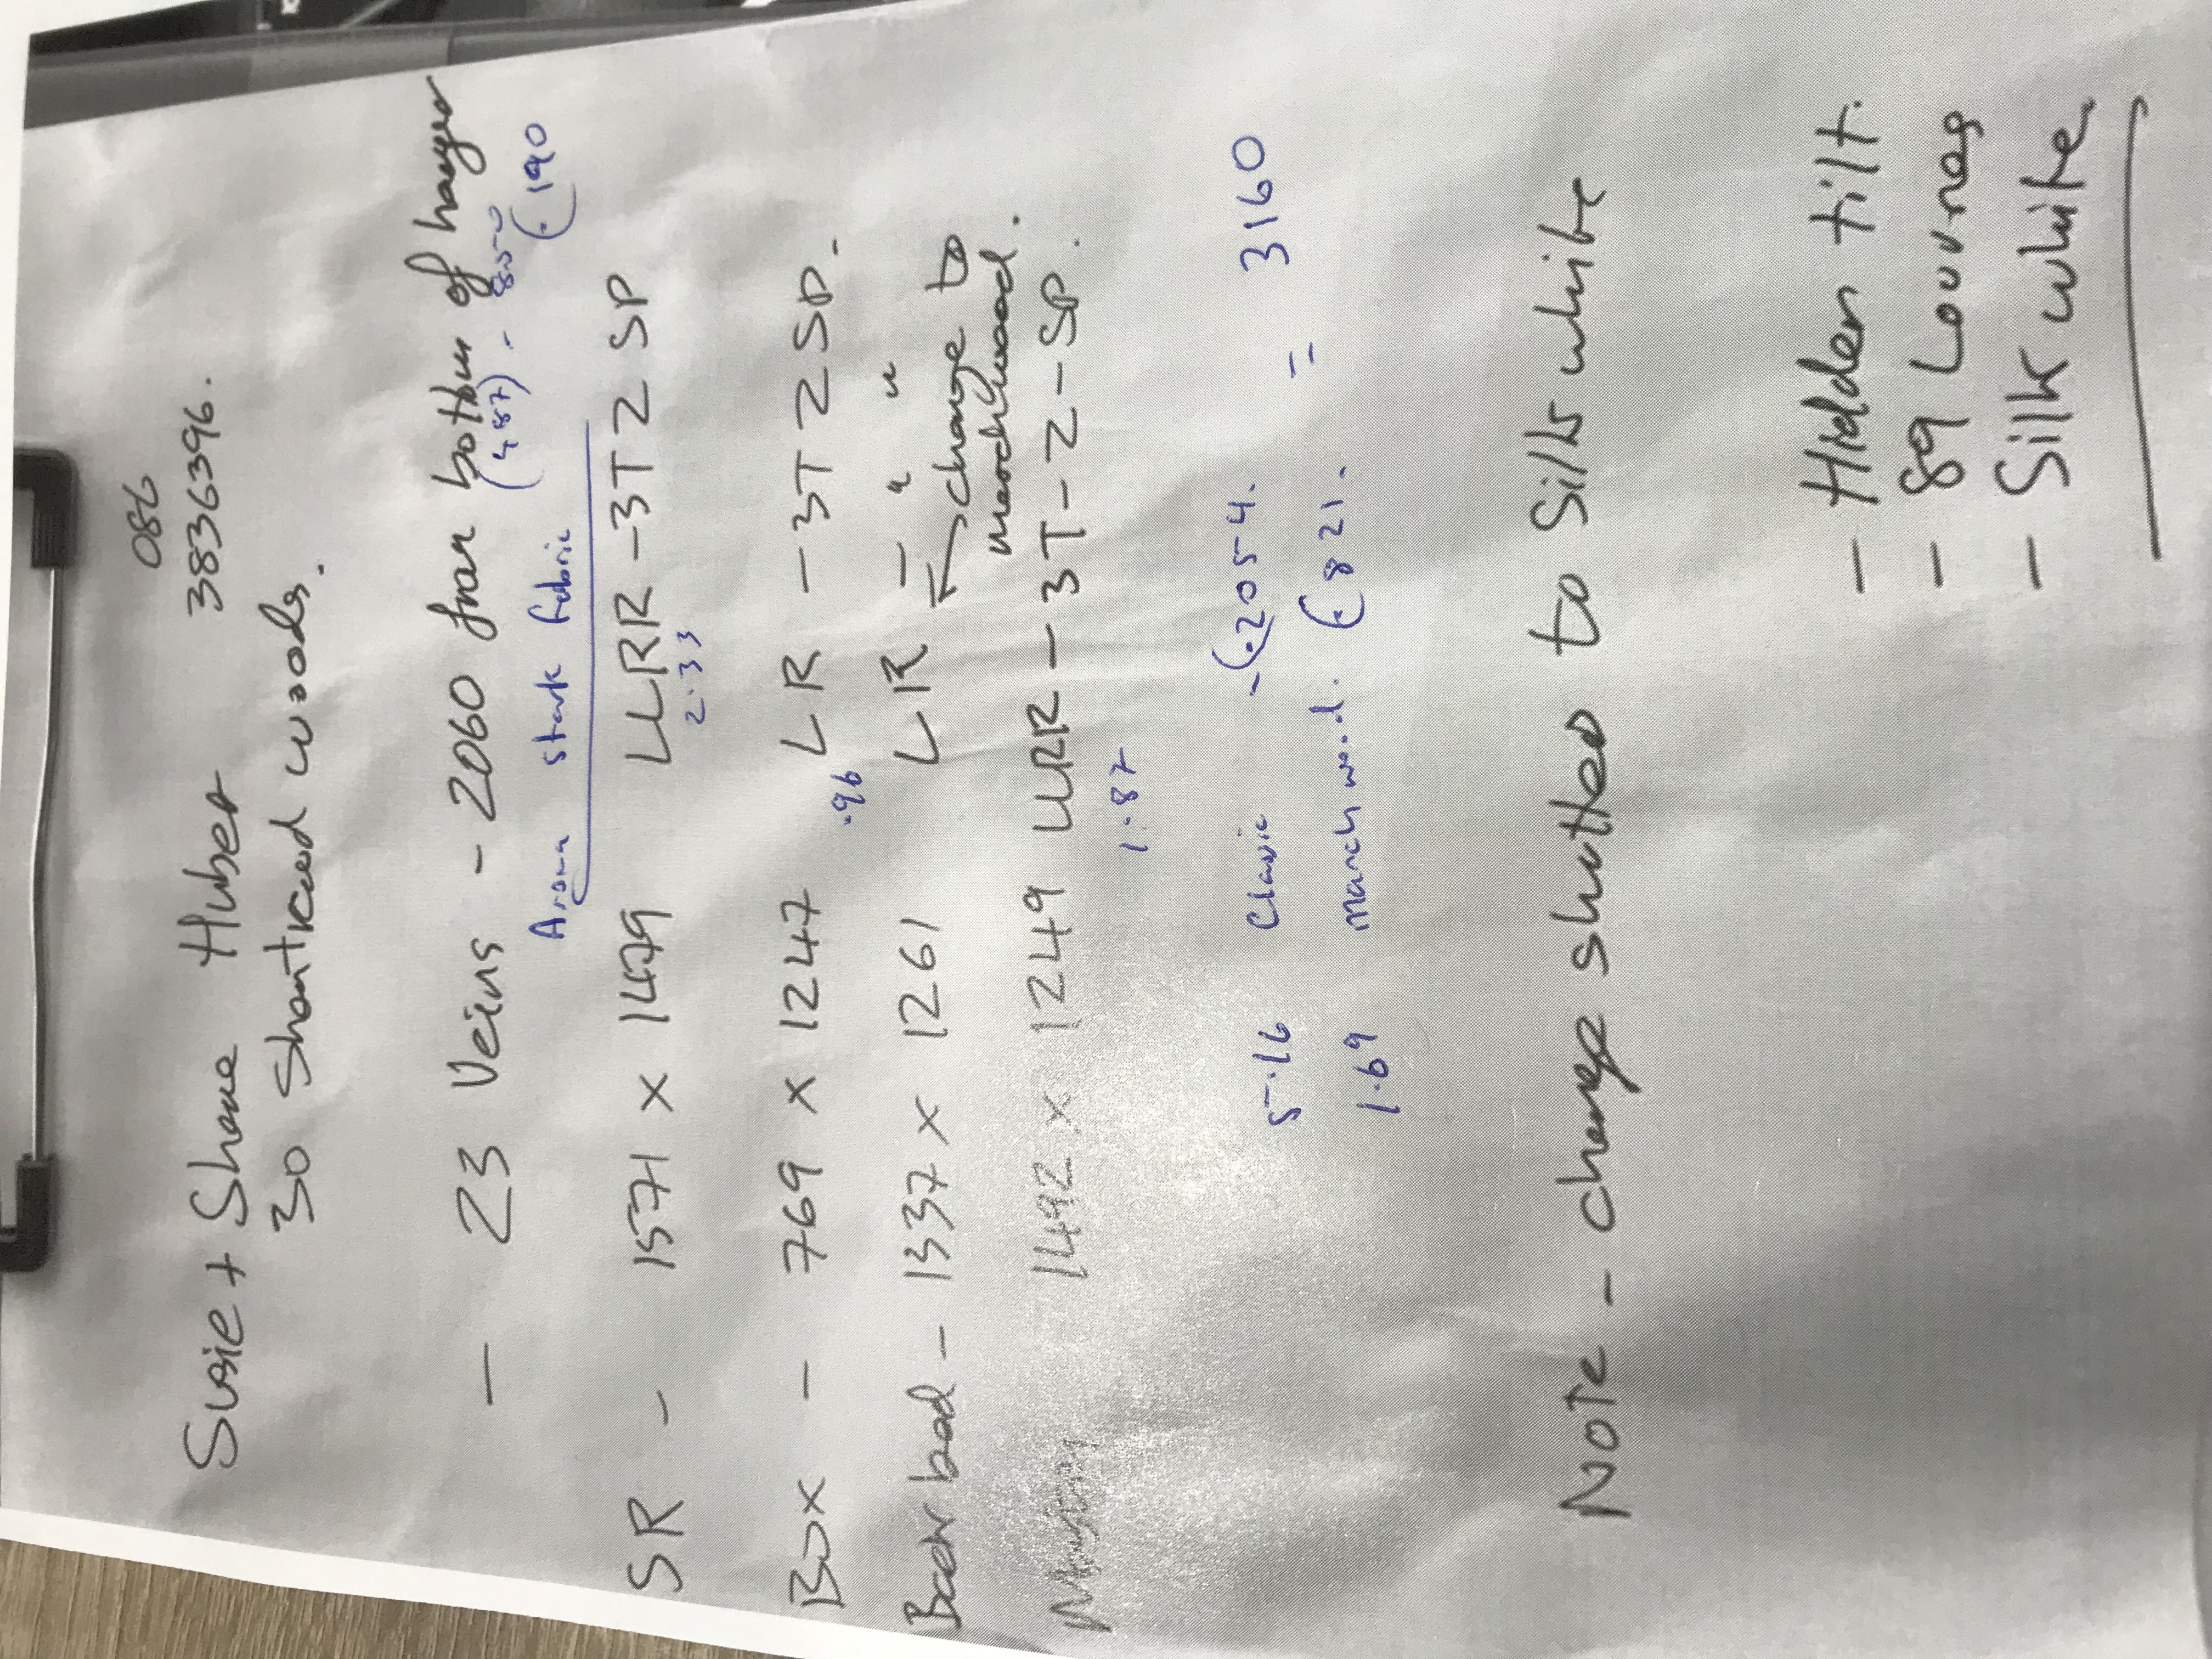 086
Susie + Shane Huber 3836396.
30 Shantraud woods.
- 23 Veins - 2060 from bottom of hanger
(487) - 850
Aroma stark fabric (€190
SR - 1571 x 1479 LLRR - 3T 2 SP
2.33
Box - 769 x 1247 LR - 3T 2 SP.
.96
Back bed - 1337 x 1261 LR - " "
→ change to
marchwood.
1492 x 1249 LLRR - 3T - 2 - SP.
1.87
5.16 Classic - €2054.
= 3160
1.69 marchwood. €821.
Note - change shutters to Silk white
- Hidden tilt.
- 89 Louvres
- Silk white